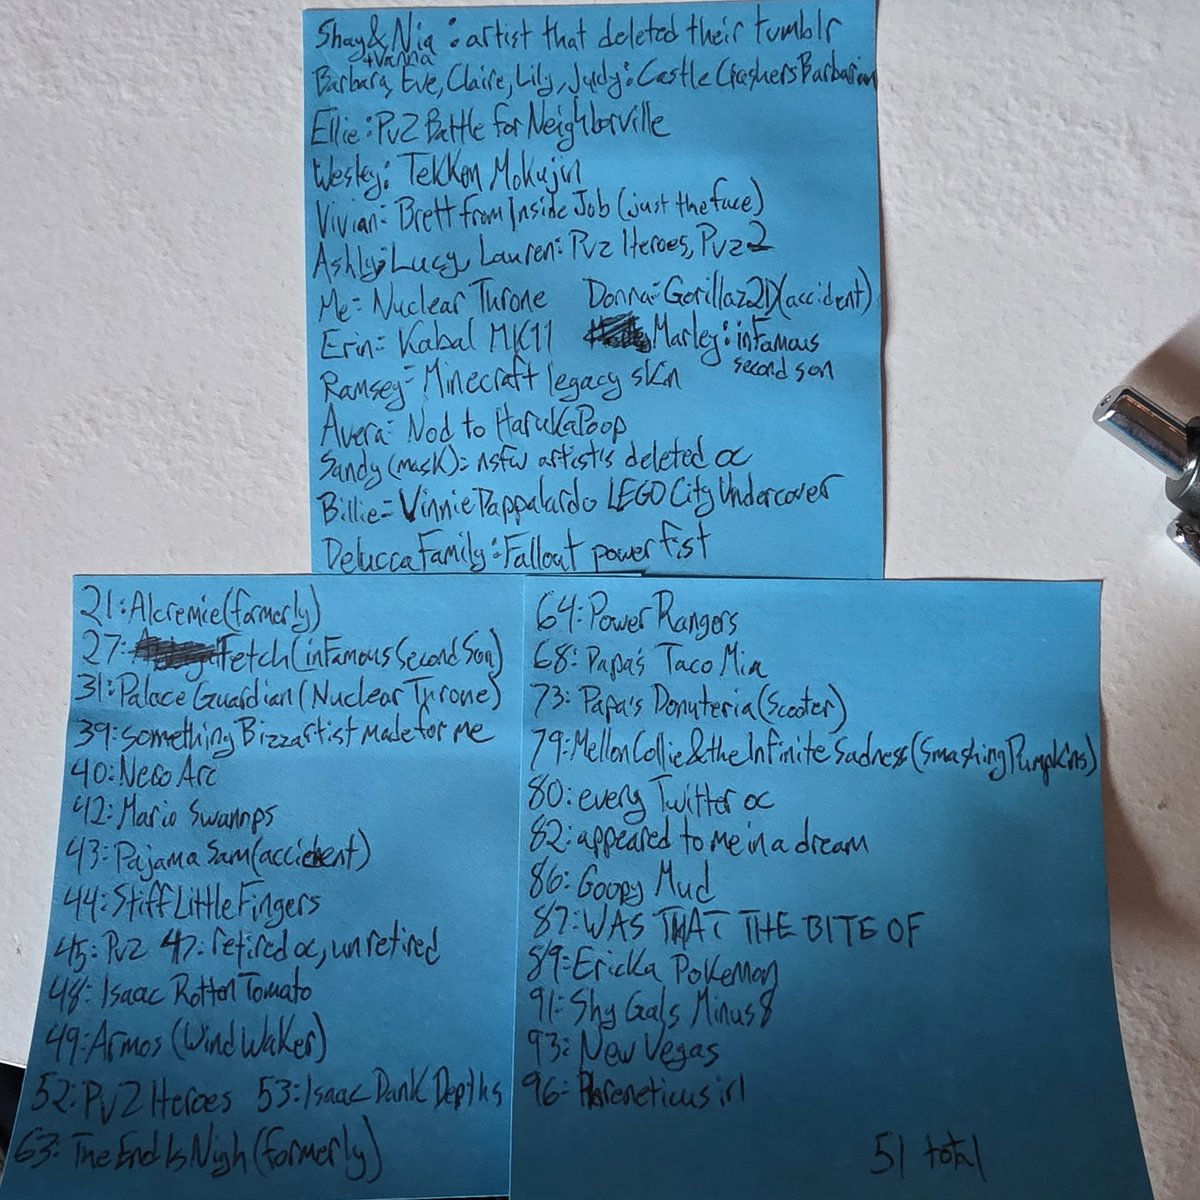 Shay & Nia : artist that deleted their tumblr
+Vanna
Barbara, Eve, Claire, Lily, Judy: Castle Crashers Barbarian
Ellie: PvZ Battle for Neighborville
Wesley: Tekken Mokujin
Vivian: Brett from Inside Job (just the face)
Ashly, Lucy, Lauren: PvZ Heroes, PvZ 2
Me: Nuclear Throne Donna: Gorillaz 2D (accident)
Erin: Kabal MK11 Marley: inFamous
second son
Ramsey: Minecraft legacy skin
Avera: Nod to HarukaPoop
Sandy (mask): nsfw artist's deleted oc
Billie: Vinnie Pappalardo LEGO City Undercover
Delucca Family: Fallout power fist
21: Alcremie (formerly)
27: Fetch (inFamous Second Son)
31: Palace Guardian (Nuclear Throne)
39: something Bizzartist made for me
40: Neco Arc
42: Mario Swamps
43: Pajama Sam (accident)
44: Stiff Little Fingers
45: PvZ 47: retired oc, unretired
48: Isaac Rotten Tomato
49: Armos (Wind Waker)
52: PvZ Heroes 53: Isaac Dank Depths
63: The End Is Nigh (formerly)
64: Power Rangers
68: Papa's Taco Mia
73: Papa's Donuteria (Scooter)
79: Mellon Collie & the Infinite Sadness (Smashing Pumpkins)
80: every Twitter oc
82: appeared to me in a dream
86: Goopy Mud
87: WAS THAT THE BITE OF
89: Ericka Pokemon
91: Shy Gals Minus8
93: New Vegas
96: Phreneticus irl
51 total